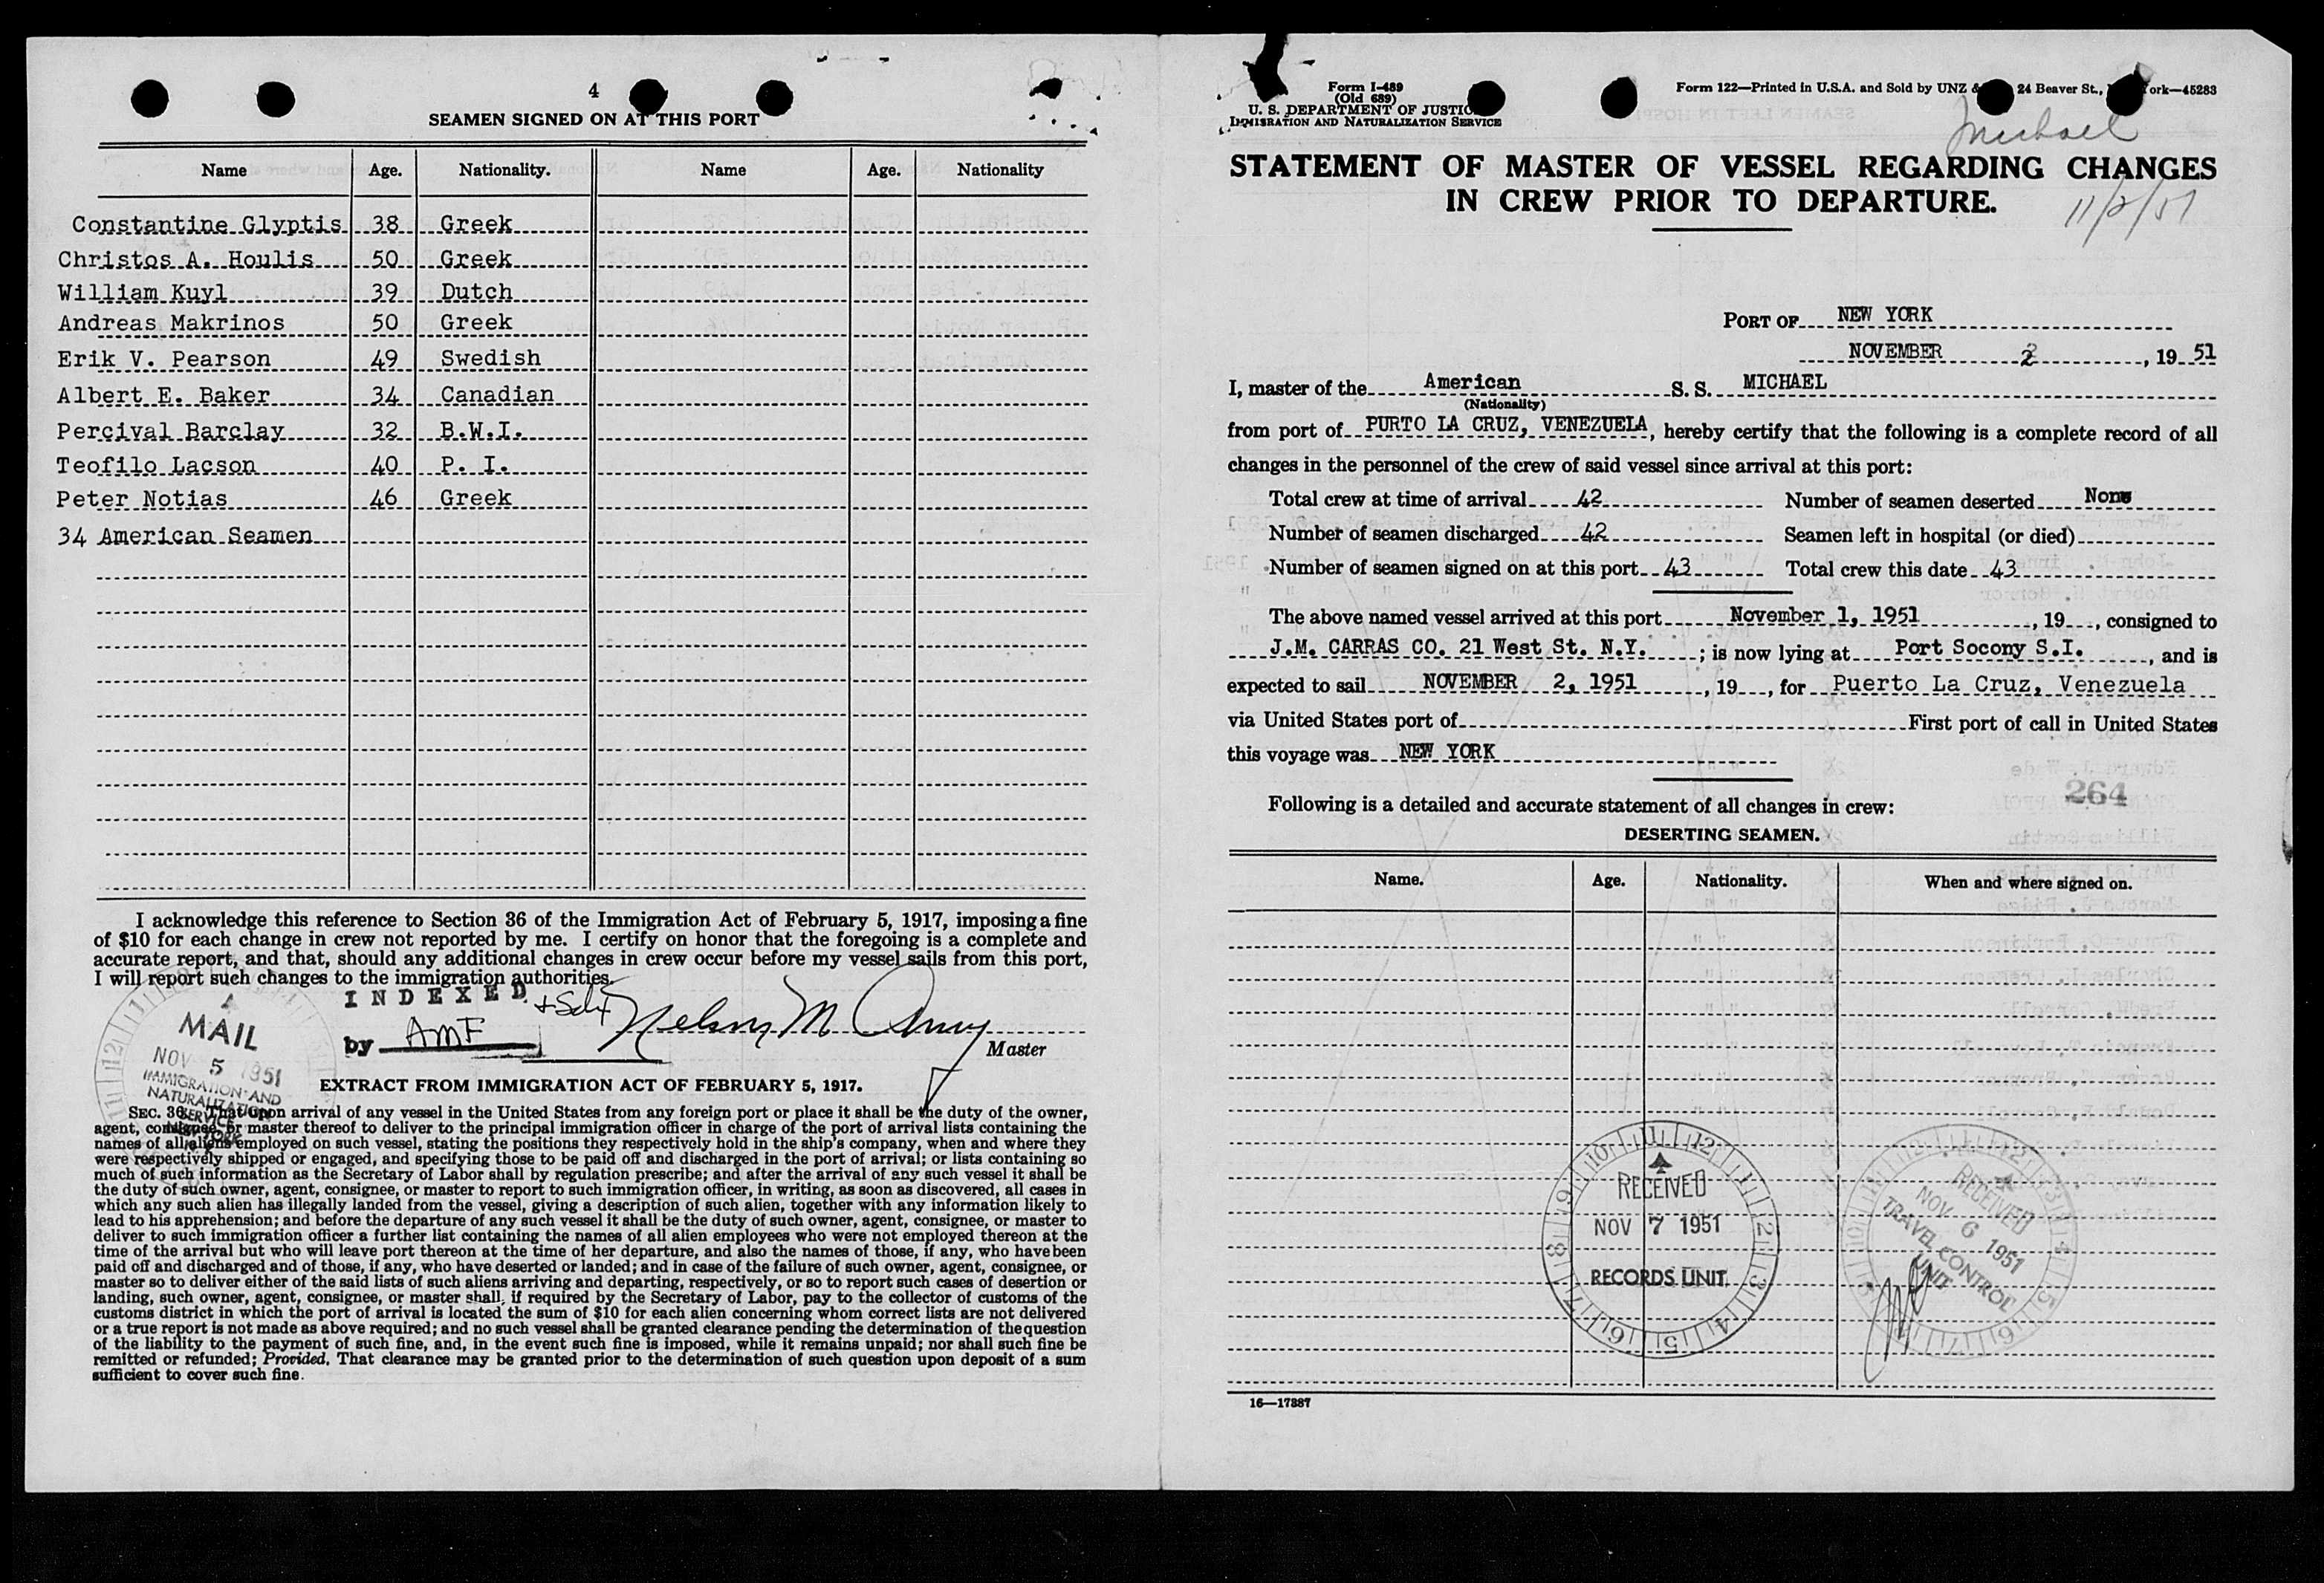 4
SEAMEN SIGNED ON AT THIS PORT
Name Age. Nationality. Name Age. Nationality
Constantine Glyptis 38 Greek
Christos A. Houlis 50 Greek
William Kuyl 39 Dutch
Andreas Makrinos 50 Greek
Erik V. Pearson 49 Swedish
Albert E. Baker 34 Canadian
Percival Barclay 32 B.W.I.
Teofilo Lacson 40 P. I.
Peter Notias 46 Greek
34 American Seamen
I acknowledge this reference to Section 36 of the Immigration Act of February 5, 1917, imposing a fine
of $10 for each change in crew not reported by me. I certify on honor that the foregoing is a complete and
accurate report, and that, should any additional changes in crew occur before my vessel sails from this port,
I will report such changes to the immigration authorities.
INDEXED
by AMF
Nelson M
Master
MAIL
NOV 5 1951
IMMIGRATION AND
NATURALIZATION
SERVICE
NEW YORK
EXTRACT FROM IMMIGRATION ACT OF FEBRUARY 5, 1917.
SEC. 36. That upon arrival of any vessel in the United States from any foreign port or place it shall be the duty of the owner,
agent, consignee, or master thereof to deliver to the principal immigration officer in charge of the port of arrival lists containing the
names of all aliens employed on such vessel, stating the positions they respectively hold in the ship's company, when and where they
were respectively shipped or engaged, and specifying those to be paid off and discharged in the port of arrival; or lists containing so
much of such information as the Secretary of Labor shall by regulation prescribe; and after the arrival of any such vessel it shall be
the duty of such owner, agent, consignee, or master to report to such immigration officer, in writing, as soon as discovered, all cases in
which any such alien has illegally landed from the vessel, giving a description of such alien, together with any information likely to
lead to his apprehension; and before the departure of any such vessel it shall be the duty of such owner, agent, consignee, or master to
deliver to such immigration officer a further list containing the names of all alien employees who were not employed thereon at the
time of the arrival but who will leave port thereon at the time of her departure, and also the names of those, if any, who have been
paid off and discharged and of those, if any, who have deserted or landed; and in case of the failure of such owner, agent, consignee, or
master so to deliver either of the said lists of such aliens arriving and departing, respectively, or so to report such cases of desertion or
landing, such owner, agent, consignee, or master shall, if required by the Secretary of Labor, pay to the collector of customs of the
customs district in which the port of arrival is located the sum of $10 for each alien concerning whom correct lists are not delivered
or a true report is not made as above required; and no such vessel shall be granted clearance pending the determination of the question
of the liability to the payment of such fine, and, in the event such fine is imposed, while it remains unpaid; nor shall such fine be
remitted or refunded; Provided, That clearance may be granted prior to the determination of such question upon deposit of a sum
sufficient to cover such fine.
Form I-489
(Old 689)
U. S. DEPARTMENT OF JUSTIC
IMMIGRATION AND NATURALIZATION SERVICE
Form 122—Printed in U.S.A. and Sold by UNZ & 24 Beaver St., ork—45283
Michael
STATEMENT OF MASTER OF VESSEL REGARDING CHANGES
IN CREW PRIOR TO DEPARTURE.
11/2/51
PORT OF NEW YORK
NOVEMBER 2, 19 51
I, master of the American S. S. MICHAEL
(Nationality)
from port of PURTO LA CRUZ, VENEZUELA, hereby certify that the following is a complete record of all
changes in the personnel of the crew of said vessel since arrival at this port:
Total crew at time of arrival 42 Number of seamen deserted None
Number of seamen discharged 42 Seamen left in hospital (or died)
Number of seamen signed on at this port 43 Total crew this date 43
The above named vessel arrived at this port November 1, 1951, 19 , consigned to
J.M. CARRAS CO. 21 West St. N.Y. ; is now lying at Port Socony S.I. , and is
expected to sail NOVEMBER 2, 1951, 19 , for Puerto La Cruz, Venezuela
via United States port of First port of call in United States
this voyage was NEW YORK
264
Following is a detailed and accurate statement of all changes in crew:
DESERTING SEAMEN.
Name. Age. Nationality. When and where signed on.
RECEIVED
NOV 7 1951
RECORDS UNIT
RECEIVED
NOV 6 1951
TRAVEL CONTROL
UNIT
16—17887